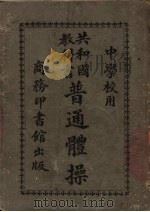 中學校用
共和國
教
普通體操
商務印書館出版